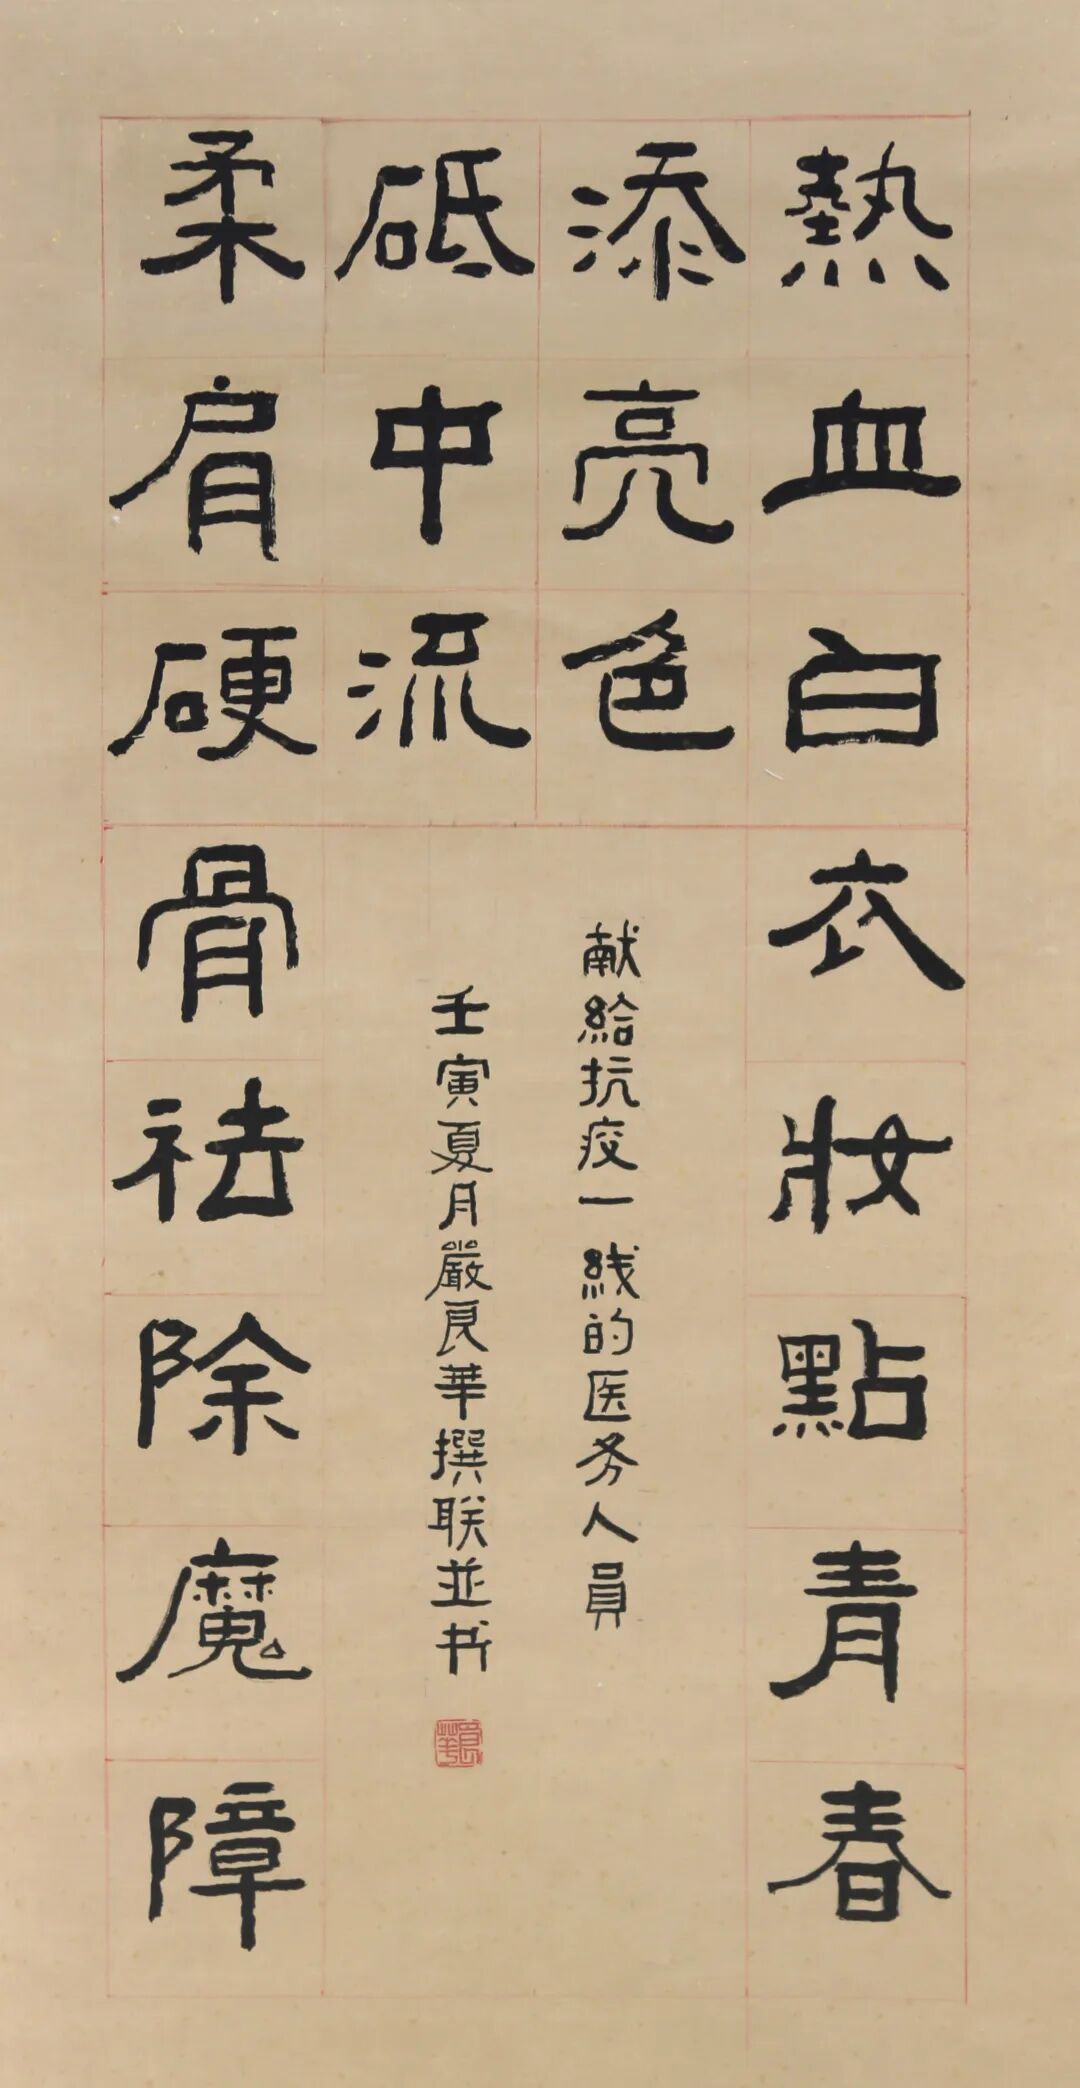 熱血白衣妝點青春
添亮色
柔肩硬骨祛除魔障
砥中流
献給抗疫一线的医务人員
壬寅夏月嚴良華撰联並书
良華